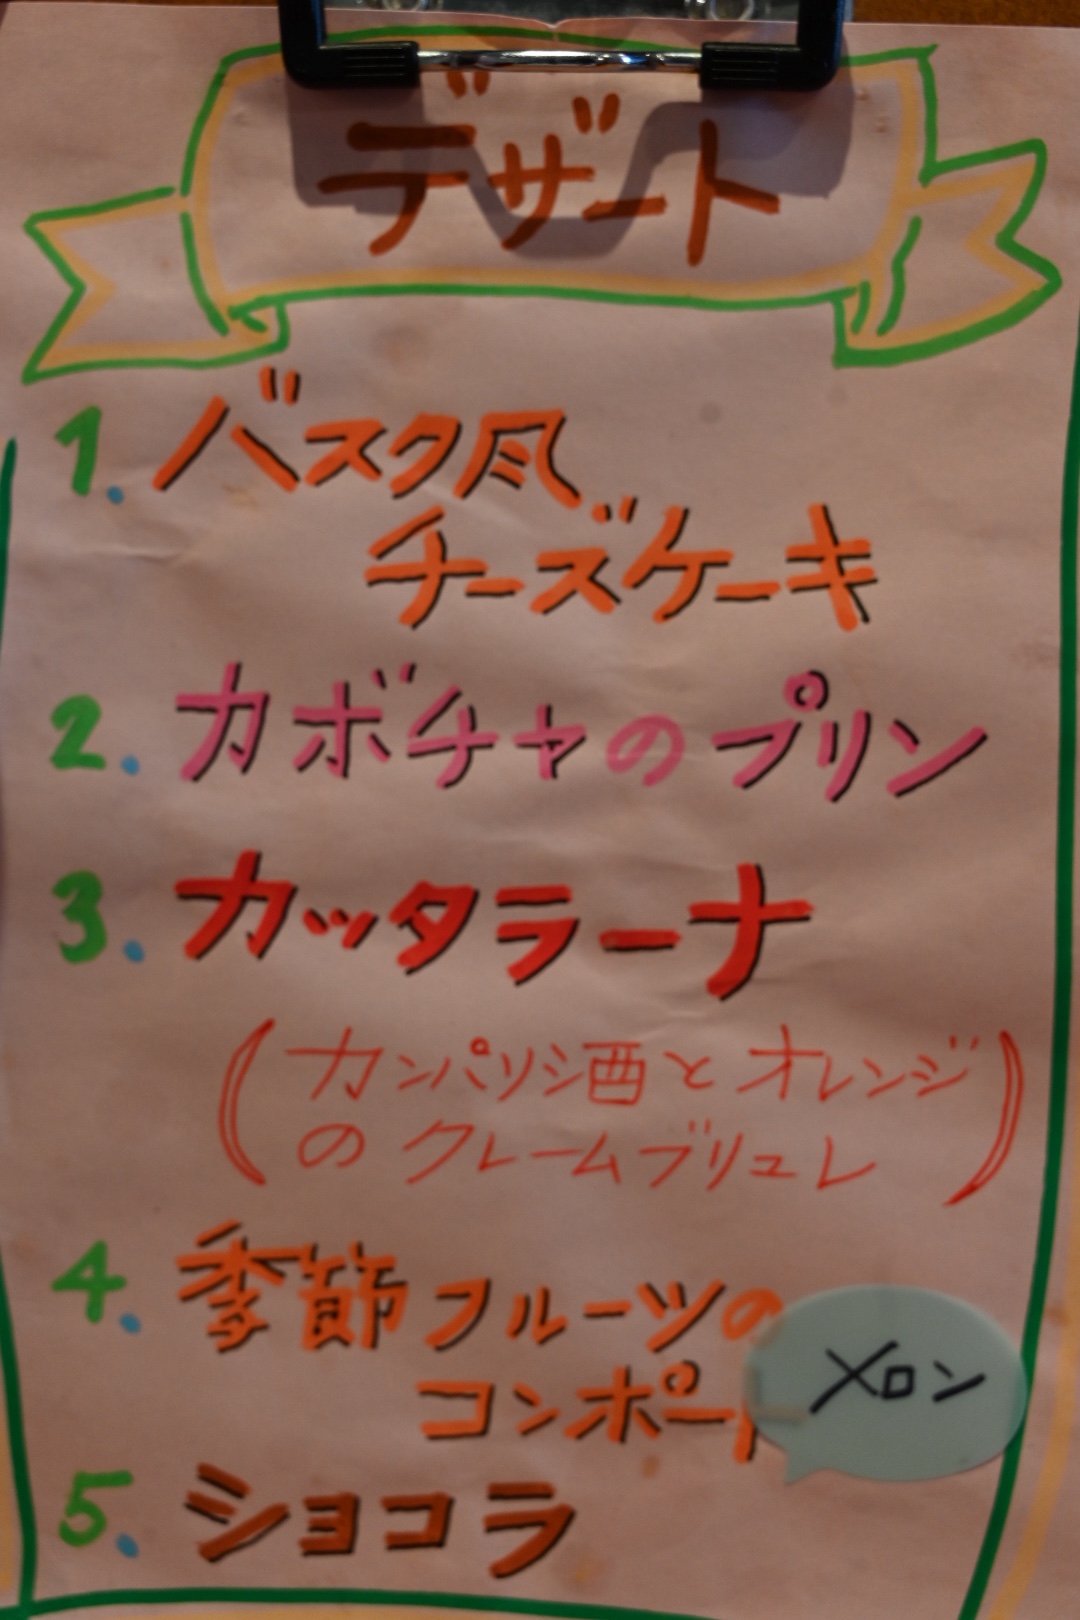 デザート
1. バスク風
チーズケーキ
2. カボチャのプリン
3. カッタラーナ
(カンパリ酒とオレンジ
のクレームブリュレ)
4. 季節フルーツの
コンポート
メロン
5. ショコラ